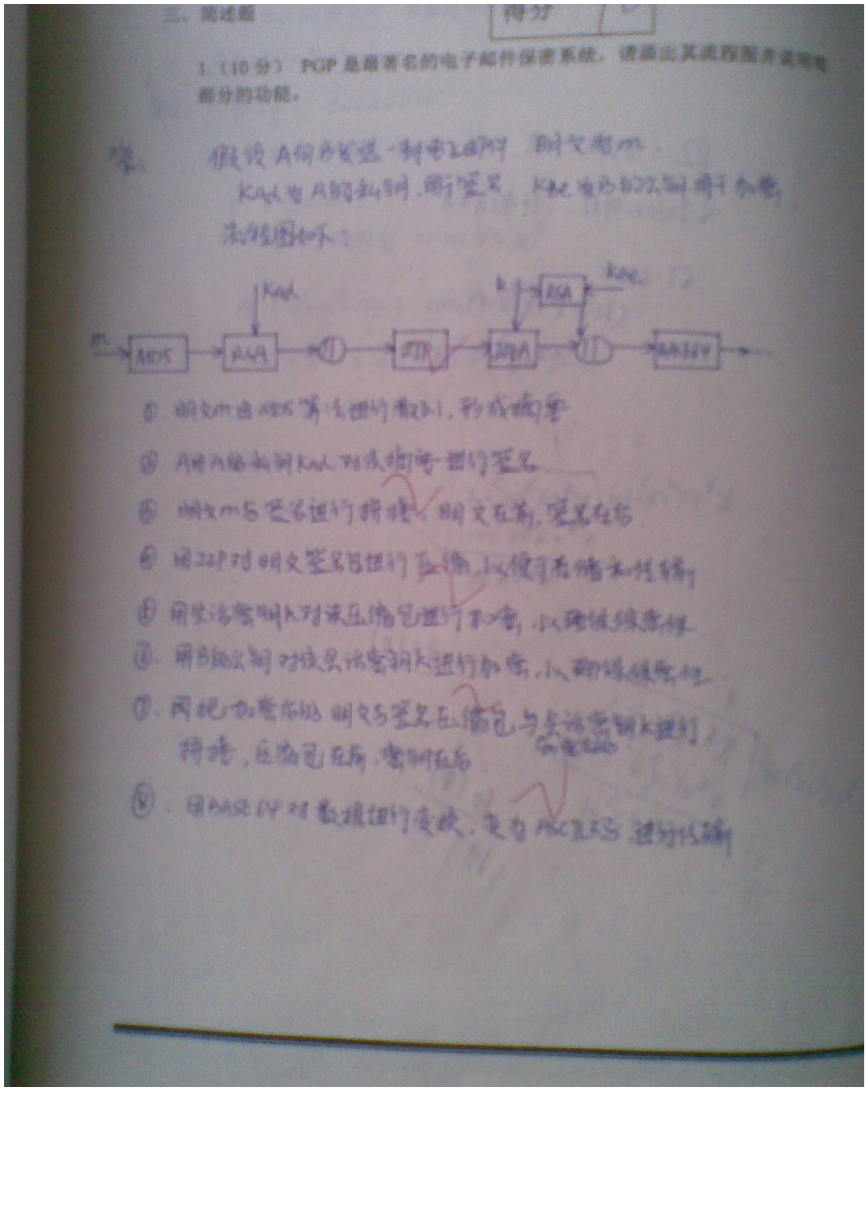 三、简述题
得分
1.（10分） PGP 是最著名的电子邮件保密系统，请画出其流程图并说明每
部分的功能。
答. 假设A向B发送一封电子邮件 明文为m.
KAd为A的私钥,用于签名 KBe为B的公钥用于加密,
流程图如下:
KAd k RSA
m MD5 RSA || ZIP || BASE64 ...
①. 明文m由MD5算法进行散列, 形成摘要
② A用A的私钥KAd对该摘要进行签名
③ 明文m与签名进行拼接, 明文在前, 签名在后
④ 用ZIP对明文签名包进行压缩,以便于存储和传输
⑤ 用会话密钥k对该压缩包进行加密, 以确保保密性
⑥. 用B的公钥对该会话密钥k进行加密, 以确保保密性.
⑦. 再把加密后的明文与签名压缩包与会话密钥k进行
拼接, 压缩包在前, 密钥在后
⑧. 用BASE64对数据进行变换, 变为ASCII码, 进行传输